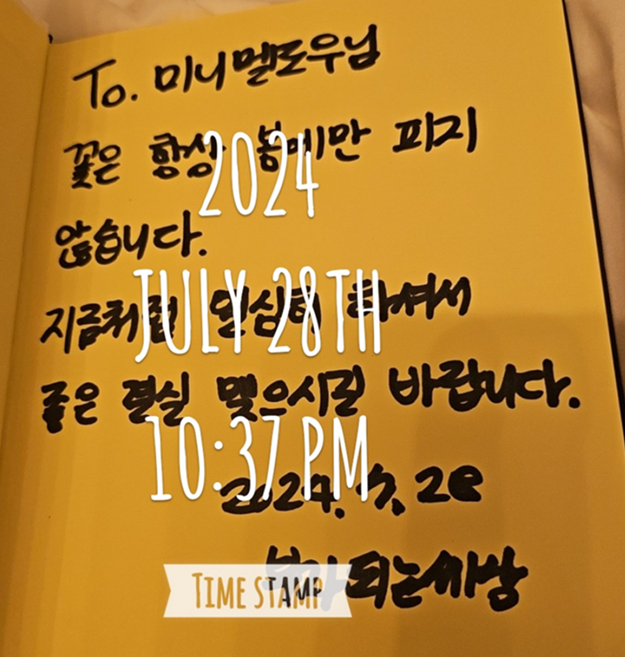 To. 미니멜로우님
꽃은 항상 봄에만 피지
않습니다.
지금처럼 열심히 하셔서
좋은 결실 맺으시길 바랍니다.
2024. 7. 28
되는세상
2024
JULY 28TH
10:37 PM
TIME STAMP